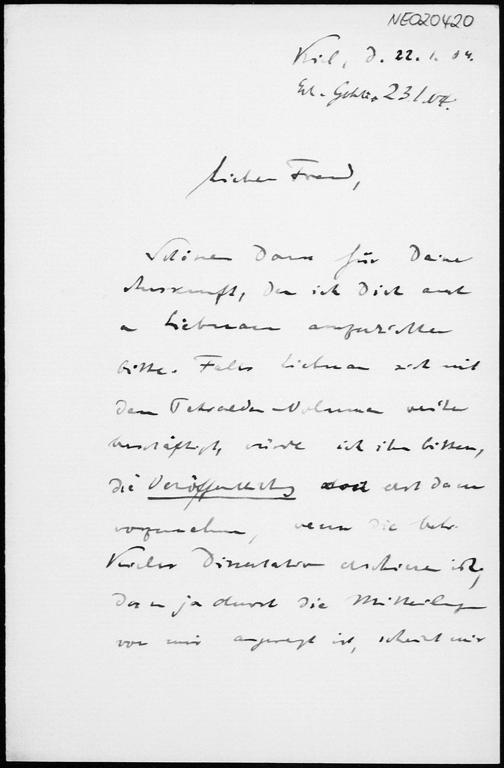 NE020420
Kiel, d. 22.1.04.
23/1.04.
Lieber Freund,
Schönen Dank für Deine
Auskunft, den ich Dich auch
an Liebmann auszurichten
bitte. Falls Liebmann sich mit
dem Tetraeder-Volumen weiter
beschäftigt, würde ich ihn bitten,
die Veröffentlichung erst dann
vorzunehmen, wenn die betr.
Kieler Dissertation erschienen ist,
da er ja durch die Mitteilungen
von mir angeregt ist, scheint mir